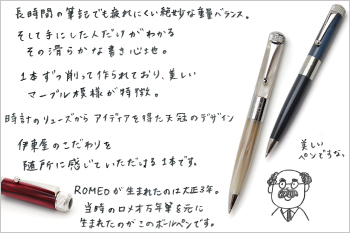 長時間の筆記でも疲れにくい絶妙な重量バランス。
そして手にした人だけがわかる
その滑らかな書き心地。
1本ずつ削って作られており、美しい
マーブル模様が特徴。
時計のリューズからアイディアを得た天冠のデザイン
伊東屋のこだわりを
随所に感じていただける1本です。
ROMEOが生まれたのは大正3年。
当時のロメオ万年筆を元に
生まれたのがこのボールペンです。
美しい
ペンですな。